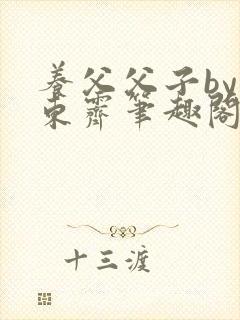 养父父子by
东霽笔趣阁
十三渡